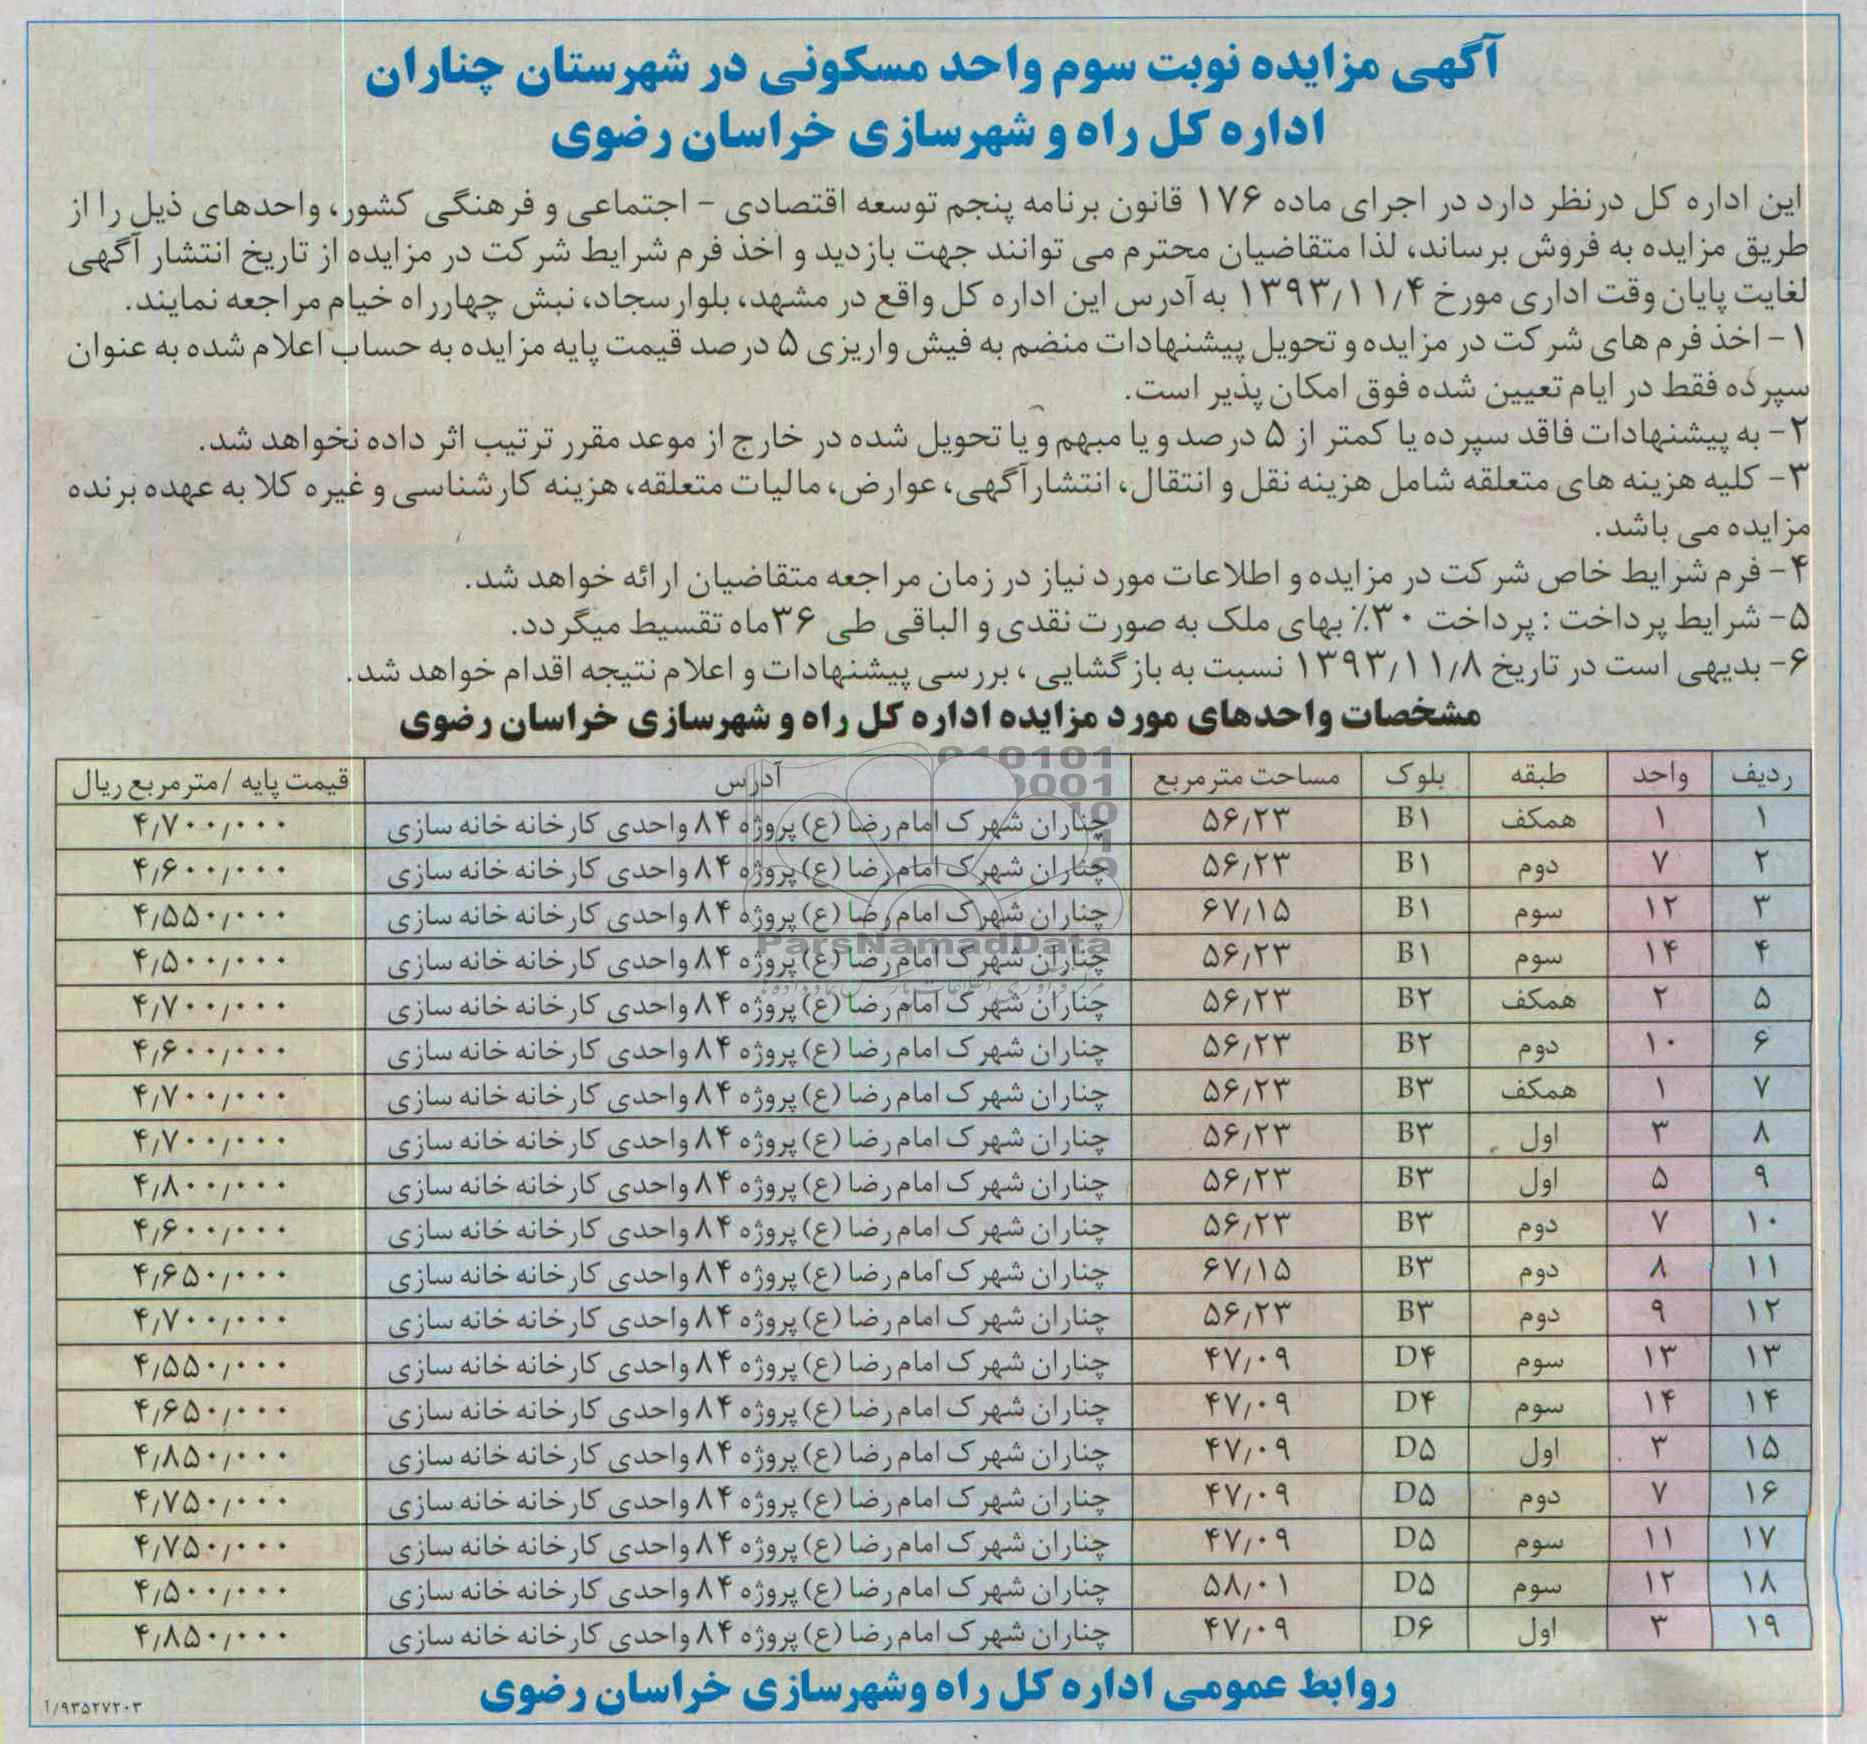 آگهی مزایده نوبت سوم واحد مسکونی در شهرستان چناران
اداره کل راه و شهرسازی خراسان رضوی
این اداره کل درنظر دارد در اجرای ماده ۱۷۶ قانون برنامه پنجم توسعه اقتصادی - اجتماعی و فرهنگی کشور، واحدهای ذیل را از
طریق مزایده به فروش برساند، لذا متقاضیان محترم می توانند جهت بازدید و اخذ فرم شرایط شرکت در مزایده از تاریخ انتشار آگهی
لغایت پایان وقت اداری مورخ ۱۳۹۳/۱۱/۴ به آدرس این اداره کل واقع در مشهد، بلوارسجاد، نبش چهارراه خیام مراجعه نمایند.
۱- اخذ فرم های شرکت در مزایده و تحویل پیشنهادات منضم به فیش واریزی ۵ درصد قیمت پایه مزایده به حساب اعلام شده به عنوان
سپرده فقط در ایام تعیین شده فوق امکان پذیر است.
۲- به پیشنهادات فاقد سپرده یا کمتر از ۵ درصد و یا مبهم و یا تحویل شده در خارج از موعد مقرر ترتیب اثر داده نخواهد شد.
۳- کلیه هزینه های متعلقه شامل هزینه نقل و انتقال، انتشارآگهی، عوارض، مالیات متعلقه، هزینه کارشناسی و غیره کلا به عهده برنده
مزایده می باشد.
۴- فرم شرایط خاص شرکت در مزایده و اطلاعات مورد نیاز در زمان مراجعه متقاضیان ارائه خواهد شد.
۵- شرایط پرداخت : پرداخت ۳۰٪ بهای ملک به صورت نقدی و الباقی طی ۳۶ماه تقسیط میگردد.
۶- بدیهی است در تاریخ ۱۳۹۳/۱۱/۸ نسبت به بازگشایی ، بررسی پیشنهادات و اعلام نتیجه اقدام خواهد شد.
مشخصات واحدهای مورد مزایده اداره کل راه و شهرسازی خراسان رضوی
ردیف واحد طبقه بلوک مساحت مترمربع آدرس قیمت پایه /مترمربع ریال
۱ ۱ همکف B۱ ۵۶/۲۳ چناران شهرک امام رضا (ع) پروژه ۸۴ واحدی کارخانه خانه سازی ۴/۷۰۰/۰۰۰
۲ ۷ دوم B۱ ۵۶/۲۳ چناران شهرک امام رضا (ع) پروژه ۸۴ واحدی کارخانه خانه سازی ۴/۶۰۰/۰۰۰
۳ ۱۲ سوم B۱ ۶۷/۱۵ چناران شهرک امام رضا (ع) پروژه ۸۴ واحدی کارخانه خانه سازی ۴/۵۵۰/۰۰۰
۴ ۱۴ سوم B۱ ۵۶/۲۳ چناران شهرک امام رضا (ع) پروژه ۸۴ واحدی کارخانه خانه سازی ۴/۵۰۰/۰۰۰
۵ ۲ همکف B۲ ۵۶/۲۳ چناران شهرک امام رضا (ع) پروژه ۸۴ واحدی کارخانه خانه سازی ۴/۷۰۰/۰۰۰
۶ ۱۰ دوم B۲ ۵۶/۲۳ چناران شهرک امام رضا (ع) پروژه ۸۴ واحدی کارخانه خانه سازی ۴/۶۰۰/۰۰۰
۷ ۱ همکف B۳ ۵۶/۲۳ چناران شهرک امام رضا (ع) پروژه ۸۴ واحدی کارخانه خانه سازی ۴/۷۰۰/۰۰۰
۸ ۳ اول B۳ ۵۶/۲۳ چناران شهرک امام رضا (ع) پروژه ۸۴ واحدی کارخانه خانه سازی ۴/۷۰۰/۰۰۰
۹ ۵ اول B۳ ۵۶/۲۳ چناران شهرک امام رضا (ع) پروژه ۸۴ واحدی کارخانه خانه سازی ۴/۸۰۰/۰۰۰
۱۰ ۷ دوم B۳ ۵۶/۲۳ چناران شهرک امام رضا (ع) پروژه ۸۴ واحدی کارخانه خانه سازی ۴/۶۰۰/۰۰۰
۱۱ ۸ دوم B۳ ۶۷/۱۵ چناران شهرک امام رضا (ع) پروژه ۸۴ واحدی کارخانه خانه سازی ۴/۶۵۰/۰۰۰
۱۲ ۹ دوم B۳ ۵۶/۲۳ چناران شهرک امام رضا (ع) پروژه ۸۴ واحدی کارخانه خانه سازی ۴/۷۰۰/۰۰۰
۱۳ ۱۳ سوم D۴ ۴۷/۰۹ چناران شهرک امام رضا (ع) پروژه ۸۴ واحدی کارخانه خانه سازی ۴/۵۵۰/۰۰۰
۱۴ ۱۴ سوم D۴ ۴۷/۰۹ چناران شهرک امام رضا (ع) پروژه ۸۴ واحدی کارخانه خانه سازی ۴/۶۵۰/۰۰۰
۱۵ ۳ اول D۵ ۴۷/۰۹ چناران شهرک امام رضا (ع) پروژه ۸۴ واحدی کارخانه خانه سازی ۴/۸۵۰/۰۰۰
۱۶ ۷ دوم D۵ ۴۷/۰۹ چناران شهرک امام رضا (ع) پروژه ۸۴ واحدی کارخانه خانه سازی ۴/۷۵۰/۰۰۰
۱۷ ۱۱ سوم D۵ ۴۷/۰۹ چناران شهرک امام رضا (ع) پروژه ۸۴ واحدی کارخانه خانه سازی ۴/۷۵۰/۰۰۰
۱۸ ۱۲ سوم D۵ ۵۸/۰۱ چناران شهرک امام رضا (ع) پروژه ۸۴ واحدی کارخانه خانه سازی ۴/۵۰۰/۰۰۰
۱۹ ۳ اول D۶ ۴۷/۰۹ چناران شهرک امام رضا (ع) پروژه ۸۴ واحدی کارخانه خانه سازی ۴/۸۵۰/۰۰۰
ParsNamadData
روابط عمومی اداره کل راه وشهرسازی خراسان رضوی
۹۳۵۲۷۲۰۳/آ